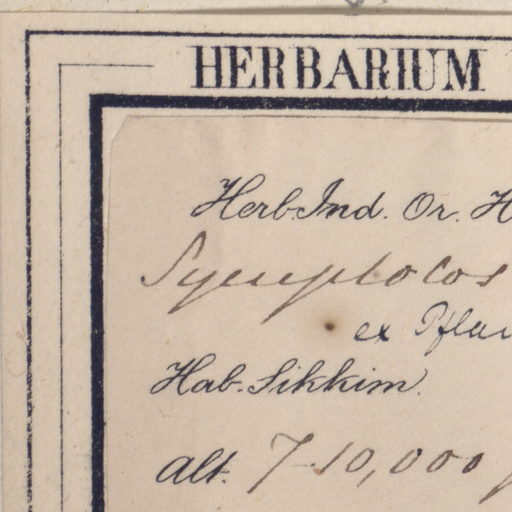 HERBARIUM
Herb. Ind. Or. H
Symplocos
ex Pflan
Hab. Sikkim.
Alt. 7-10,000 f